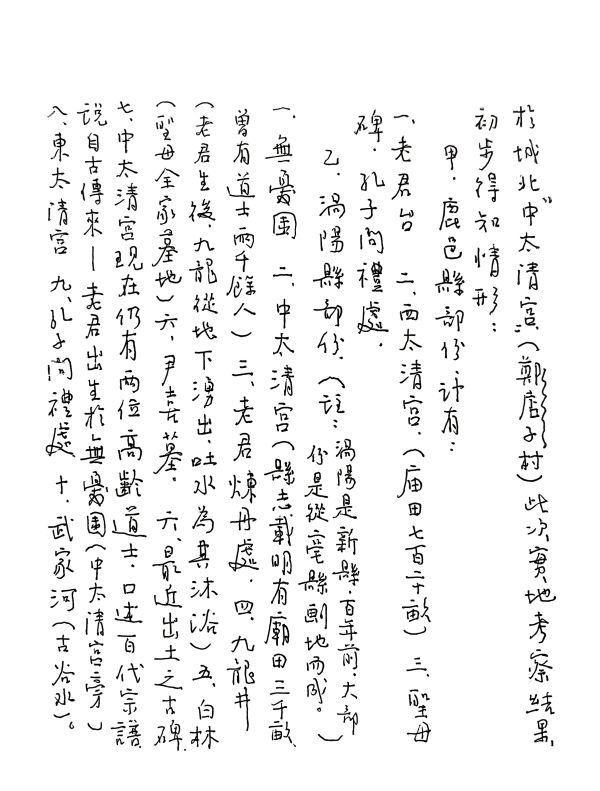 於城北“中太清宮”(鄭店子村)此次實地考察結果,
初步得知情形:
甲.鹿邑縣部份計有:
一.老君台 二.西太清宮.(庙田七百二十畝) 三.聖母
碑.孔子問禮處.
乙.渦陽縣部份.(註:渦陽是新縣.百年前.大部
份是從亳縣劃地而成。)
一.無憂園 二.中太清宮(縣志載明有廟田三千畝
曾有道士兩千餘人) 三、老君煉丹處.四、九龍井
(老君生後.九龍從地下湧出.吐水為其沐浴) 五、白林
(聖母全家墓地) 六、尹喜墓. 六、最近出土之古碑
七、中太清宮現在仍有兩位高齡道士.口述百代宗譜
說自古傳來—老君出生於無憂園(中太清宮旁)
八、東太清宮 九、孔子問禮處 十、武家河(古谷水)。